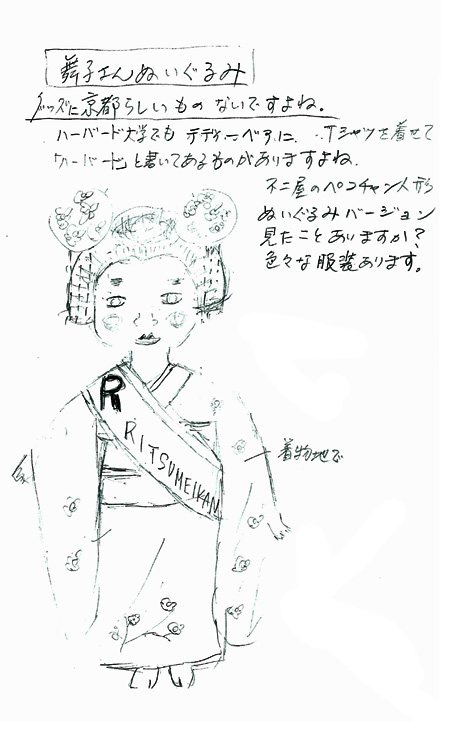 舞子さんぬいぐるみ
グッズに京都らしいものないですよね。
ハーバード大学でもテディーベアに、Tシャツを着せて
「ハーバード」と書いてあるものがありますよね。
不二屋のペコチャン人形
ぬいぐるみバージョン
見たことありますか?
色々な服装あります。
R
RITSUMEIKAN
着物地で